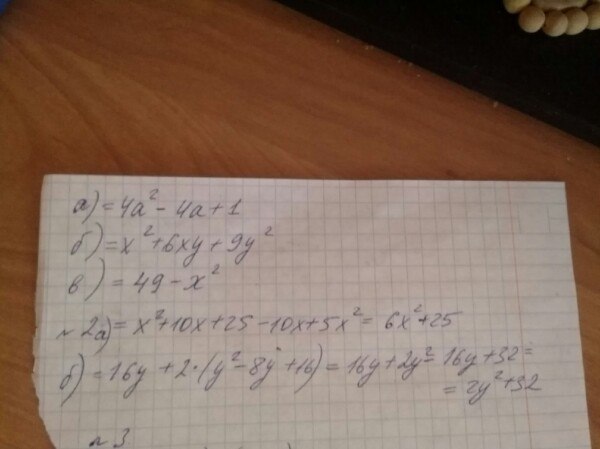 а) = 4a² - 4a + 1
б) = x² + 6xy + 9y²
в) = 49 - x²
~ 2а) = x² + 10x + 25 - 10x + 5x² = 6x² + 25
б) = 16y + 2·(y² - 8y + 16) = 16y + 2y² - 16y + 32 =
= 2y² + 32
~ 3